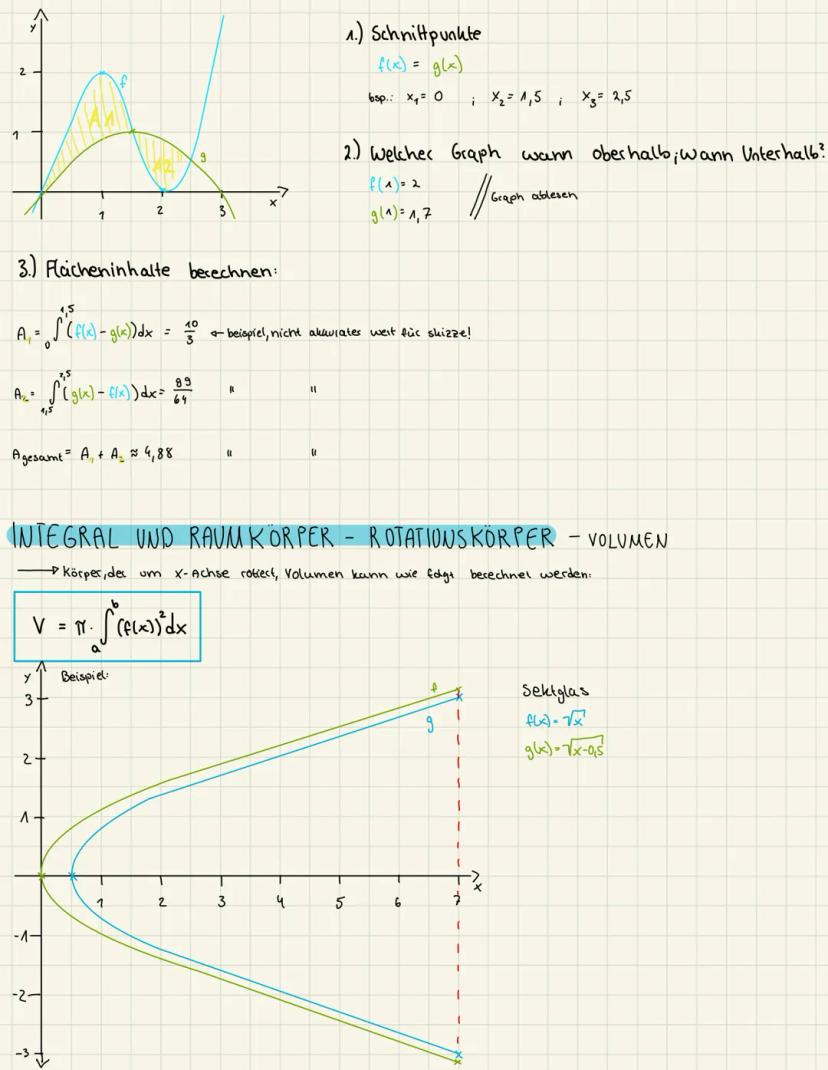 y
2
1
1
2
3
x
f
g
A1
A2
1.) Schnittpunkte
f(x) = g(x)
bsp.: x₁ = 0 ; x₂ = 1,5 ; x₃ = 2,5
2.) Welcher Graph wann oberhalb; wann Unterhalb?
f(1) = 2
g(1) = 1,7
// Graph ablesen
3.) Flächeninhalte berechnen:
A₁ = ∫₀^1,5 (f(x) - g(x))dx = 10/3 ← beispiel, nicht akkurates wert für skizze!
A₂ = ∫1,5^2,5 (g(x) - f(x))dx = 99/64 " "
Agesamt = A₁ + A₂ ≈ 4,88 " "
INTEGRAL UND RAUMKÖRPER - ROTATIONSKÖRPER - VOLUMEN
→ Körper, der um x-Achse rotiert, Volumen kann wie folgt berechnet werden:
V = π · ∫ₐᵇ (f(x))² dx
y
Beispiel:
3
2
1
-1
-2
-3
1 2 3 4 5 6 7
x
f
g
Sektglas
f(x) = √x
g(x) = √x-0,5